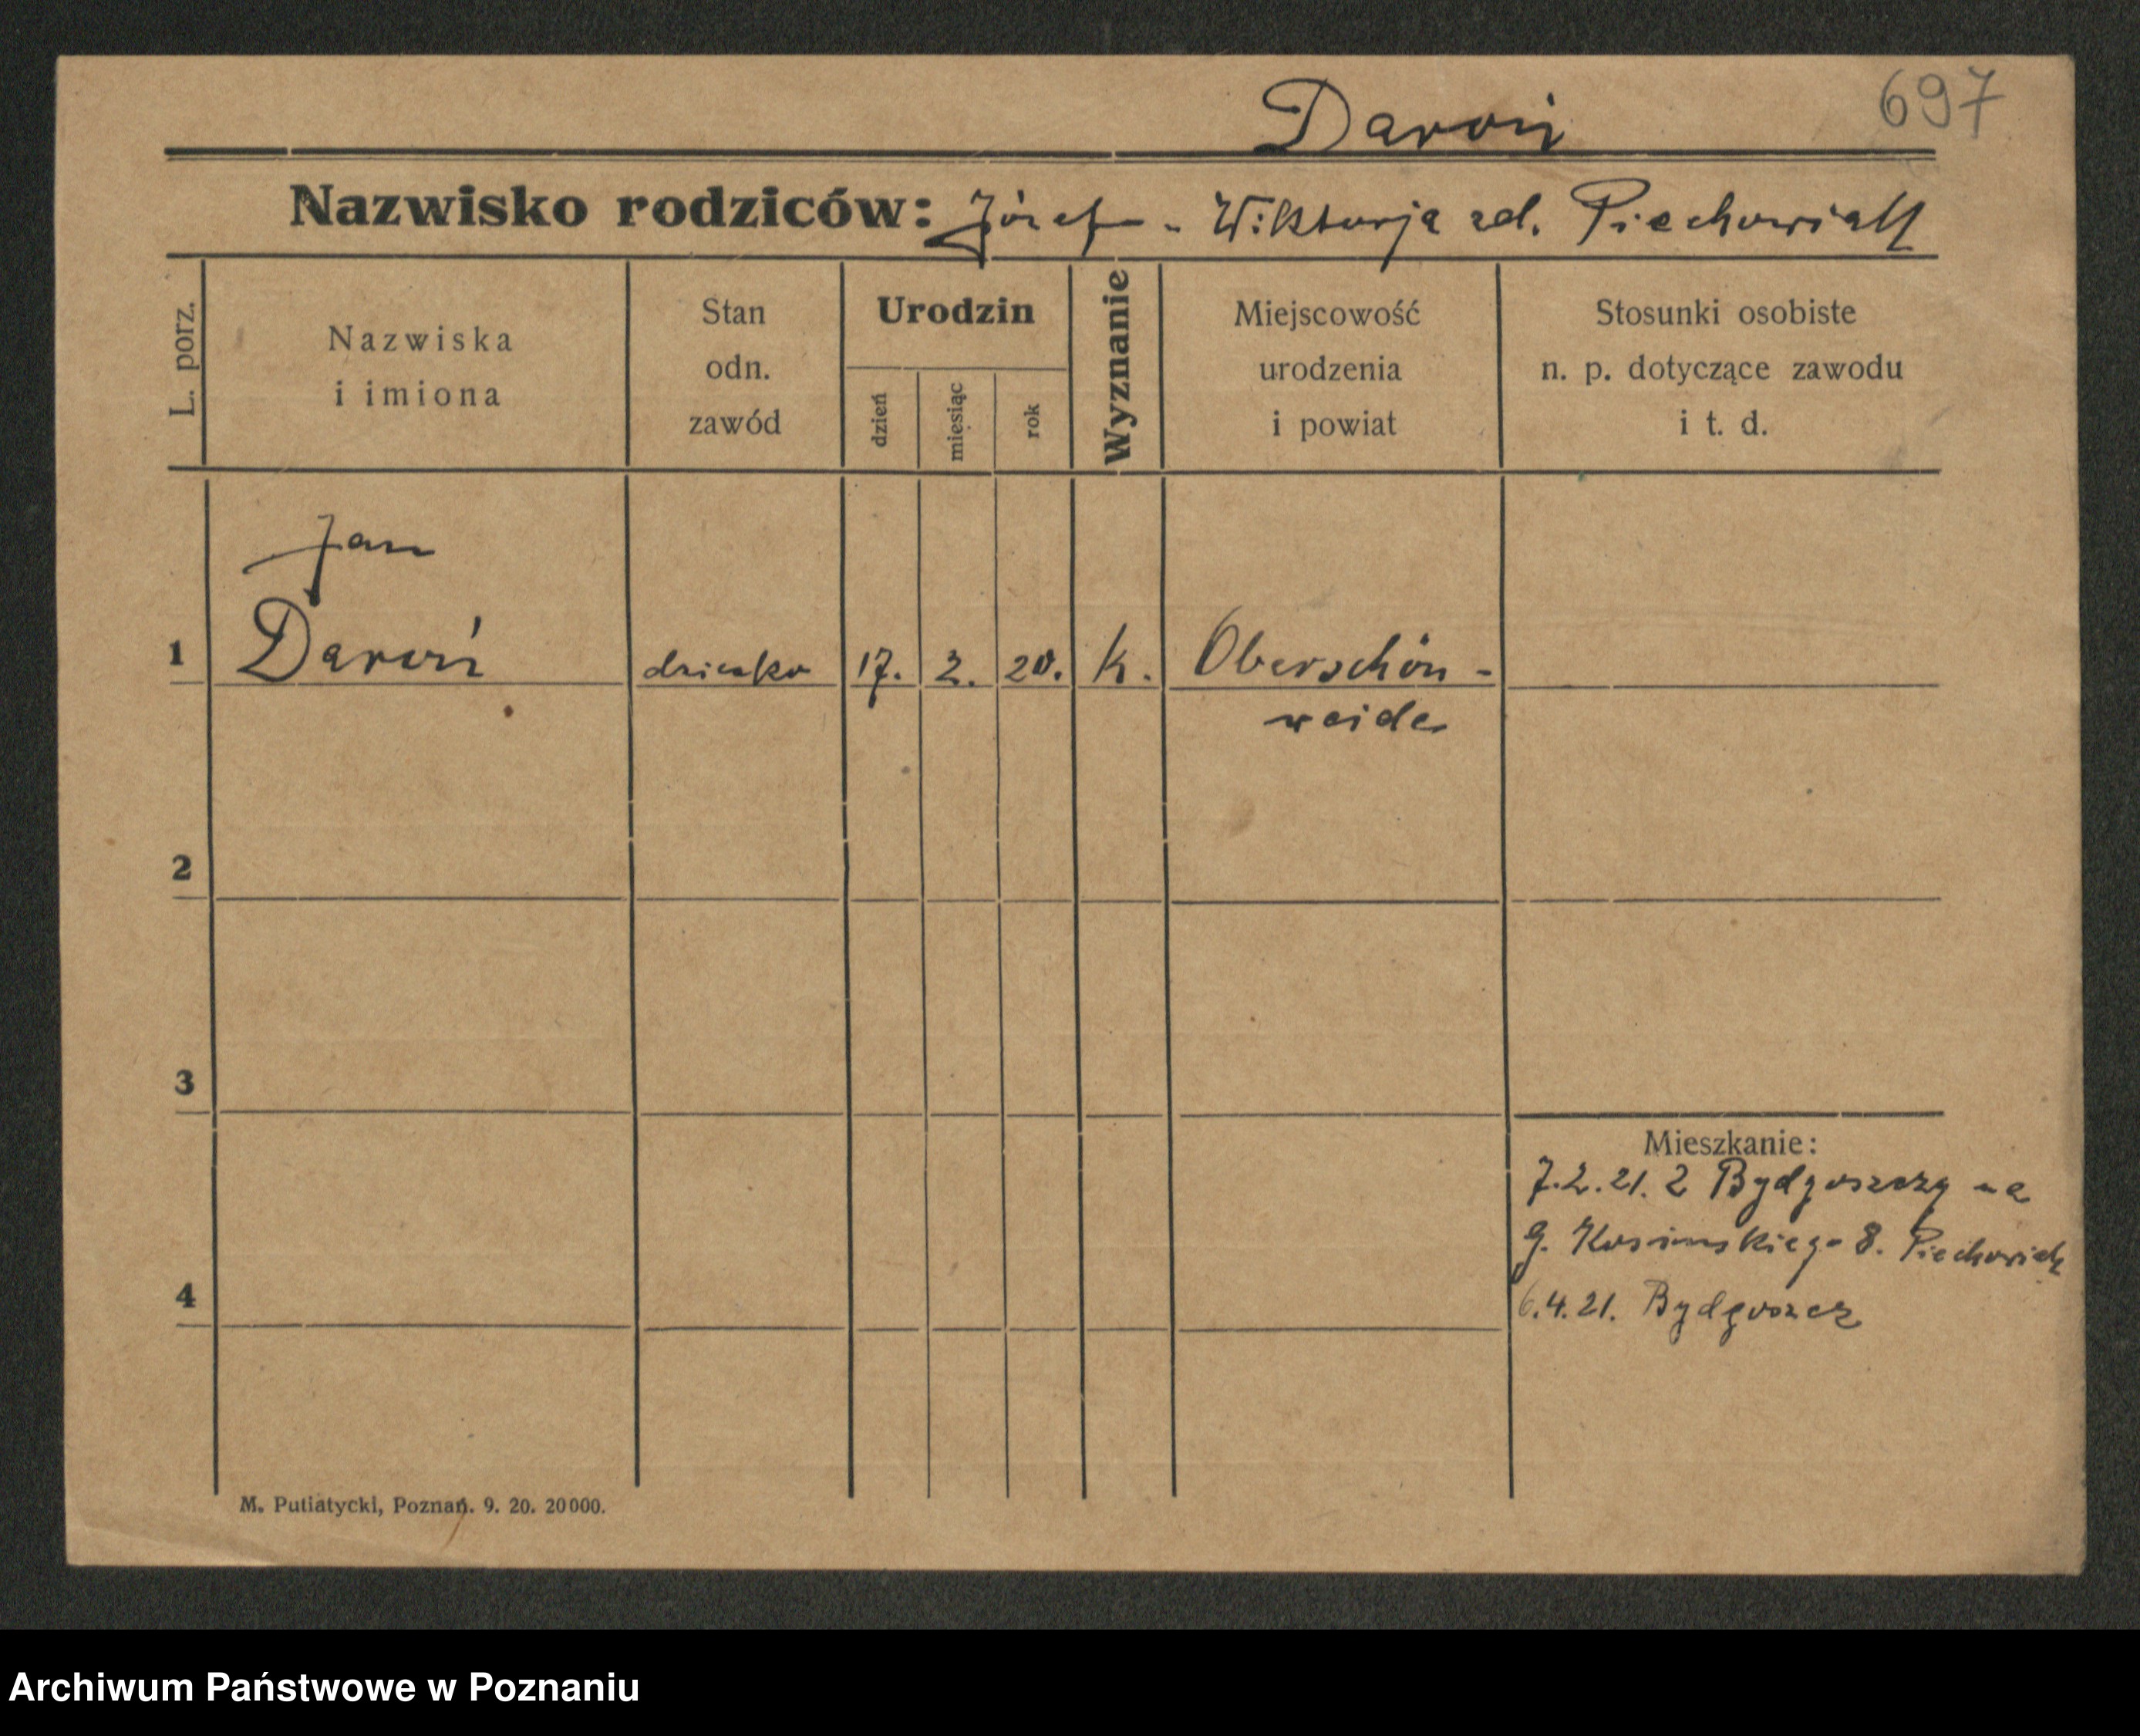 697
Daroń
Nazwisko rodziców: Józef - Wiktorja zd. Piechowiak
L. porz.
Nazwiska
i imiona
Stan
odn.
zawód
Urodzin
dzień
miesiąc
rok
Wyznanie
Miejscowość
urodzenia
i powiat
Stosunki osobiste
n. p. dotyczące zawodu
i t. d.
Jan
1 Daroń dziecko 17. 2. 20. k. Oberschön-
weide
2
3
Mieszkanie:
7.2.21. z Bydgoszczy na
g. 8. Piechowiak
4
6.4.21. Bydgoszcz
M. Putiatycki, Poznań. 9. 20. 20000.
Archiwum Państwowe w Poznaniu